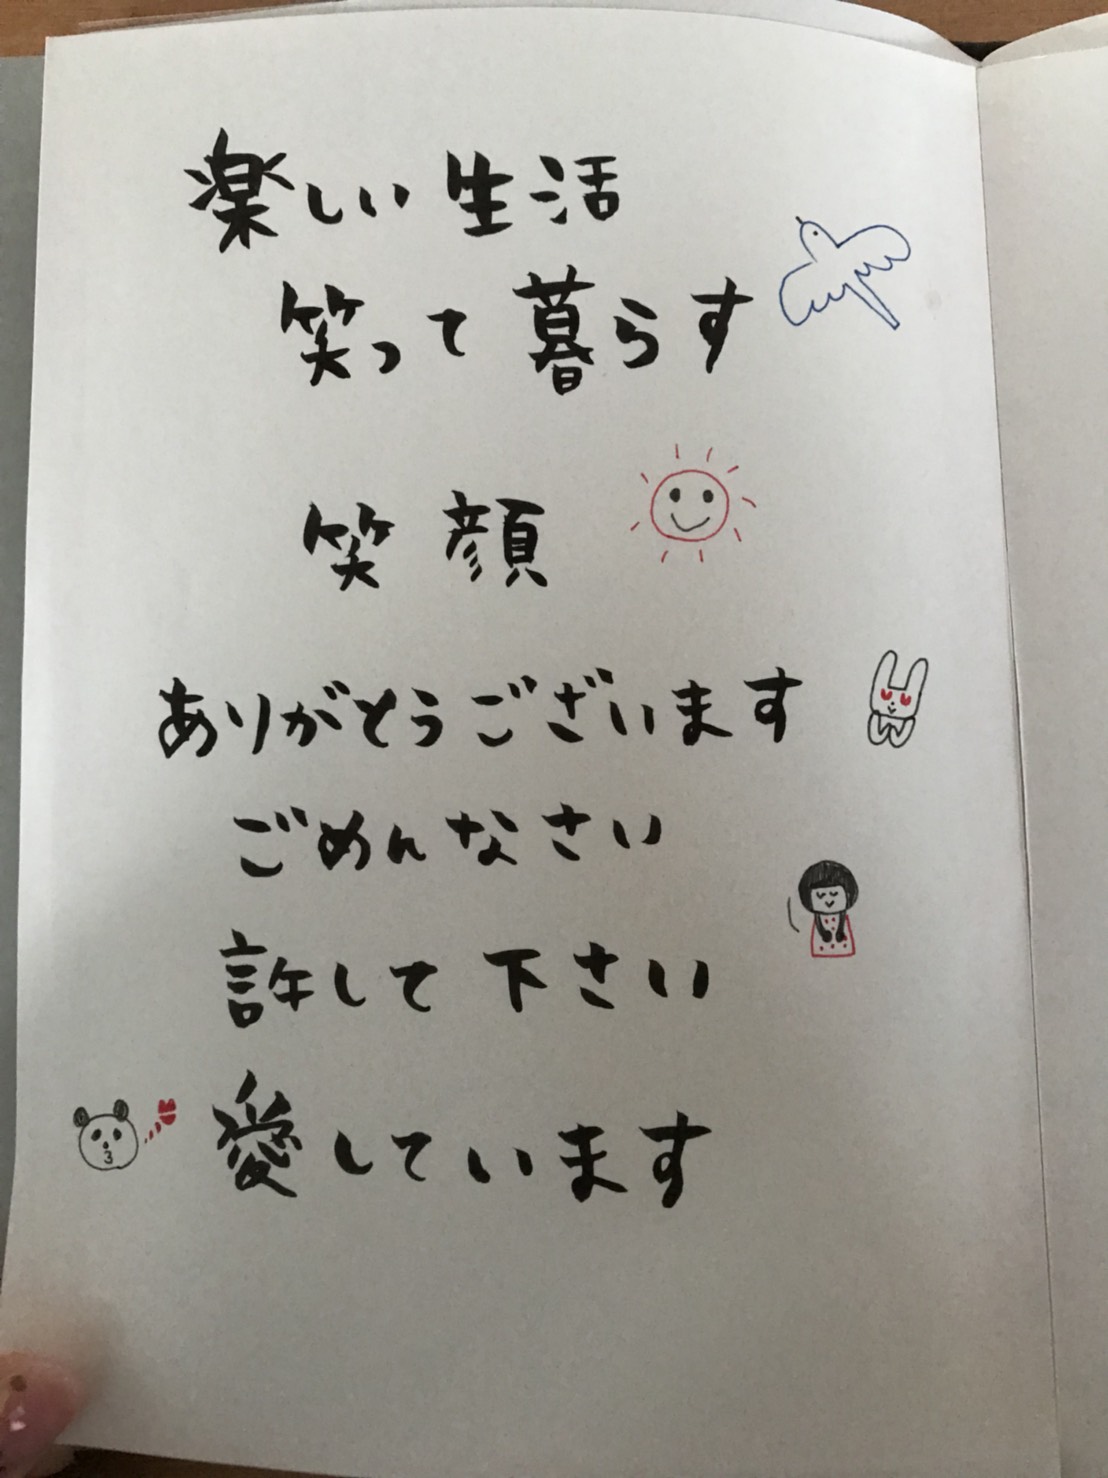 楽しい生活
笑って暮らす
笑顔
ありがとうございます
ごめんなさい
許して下さい
愛しています